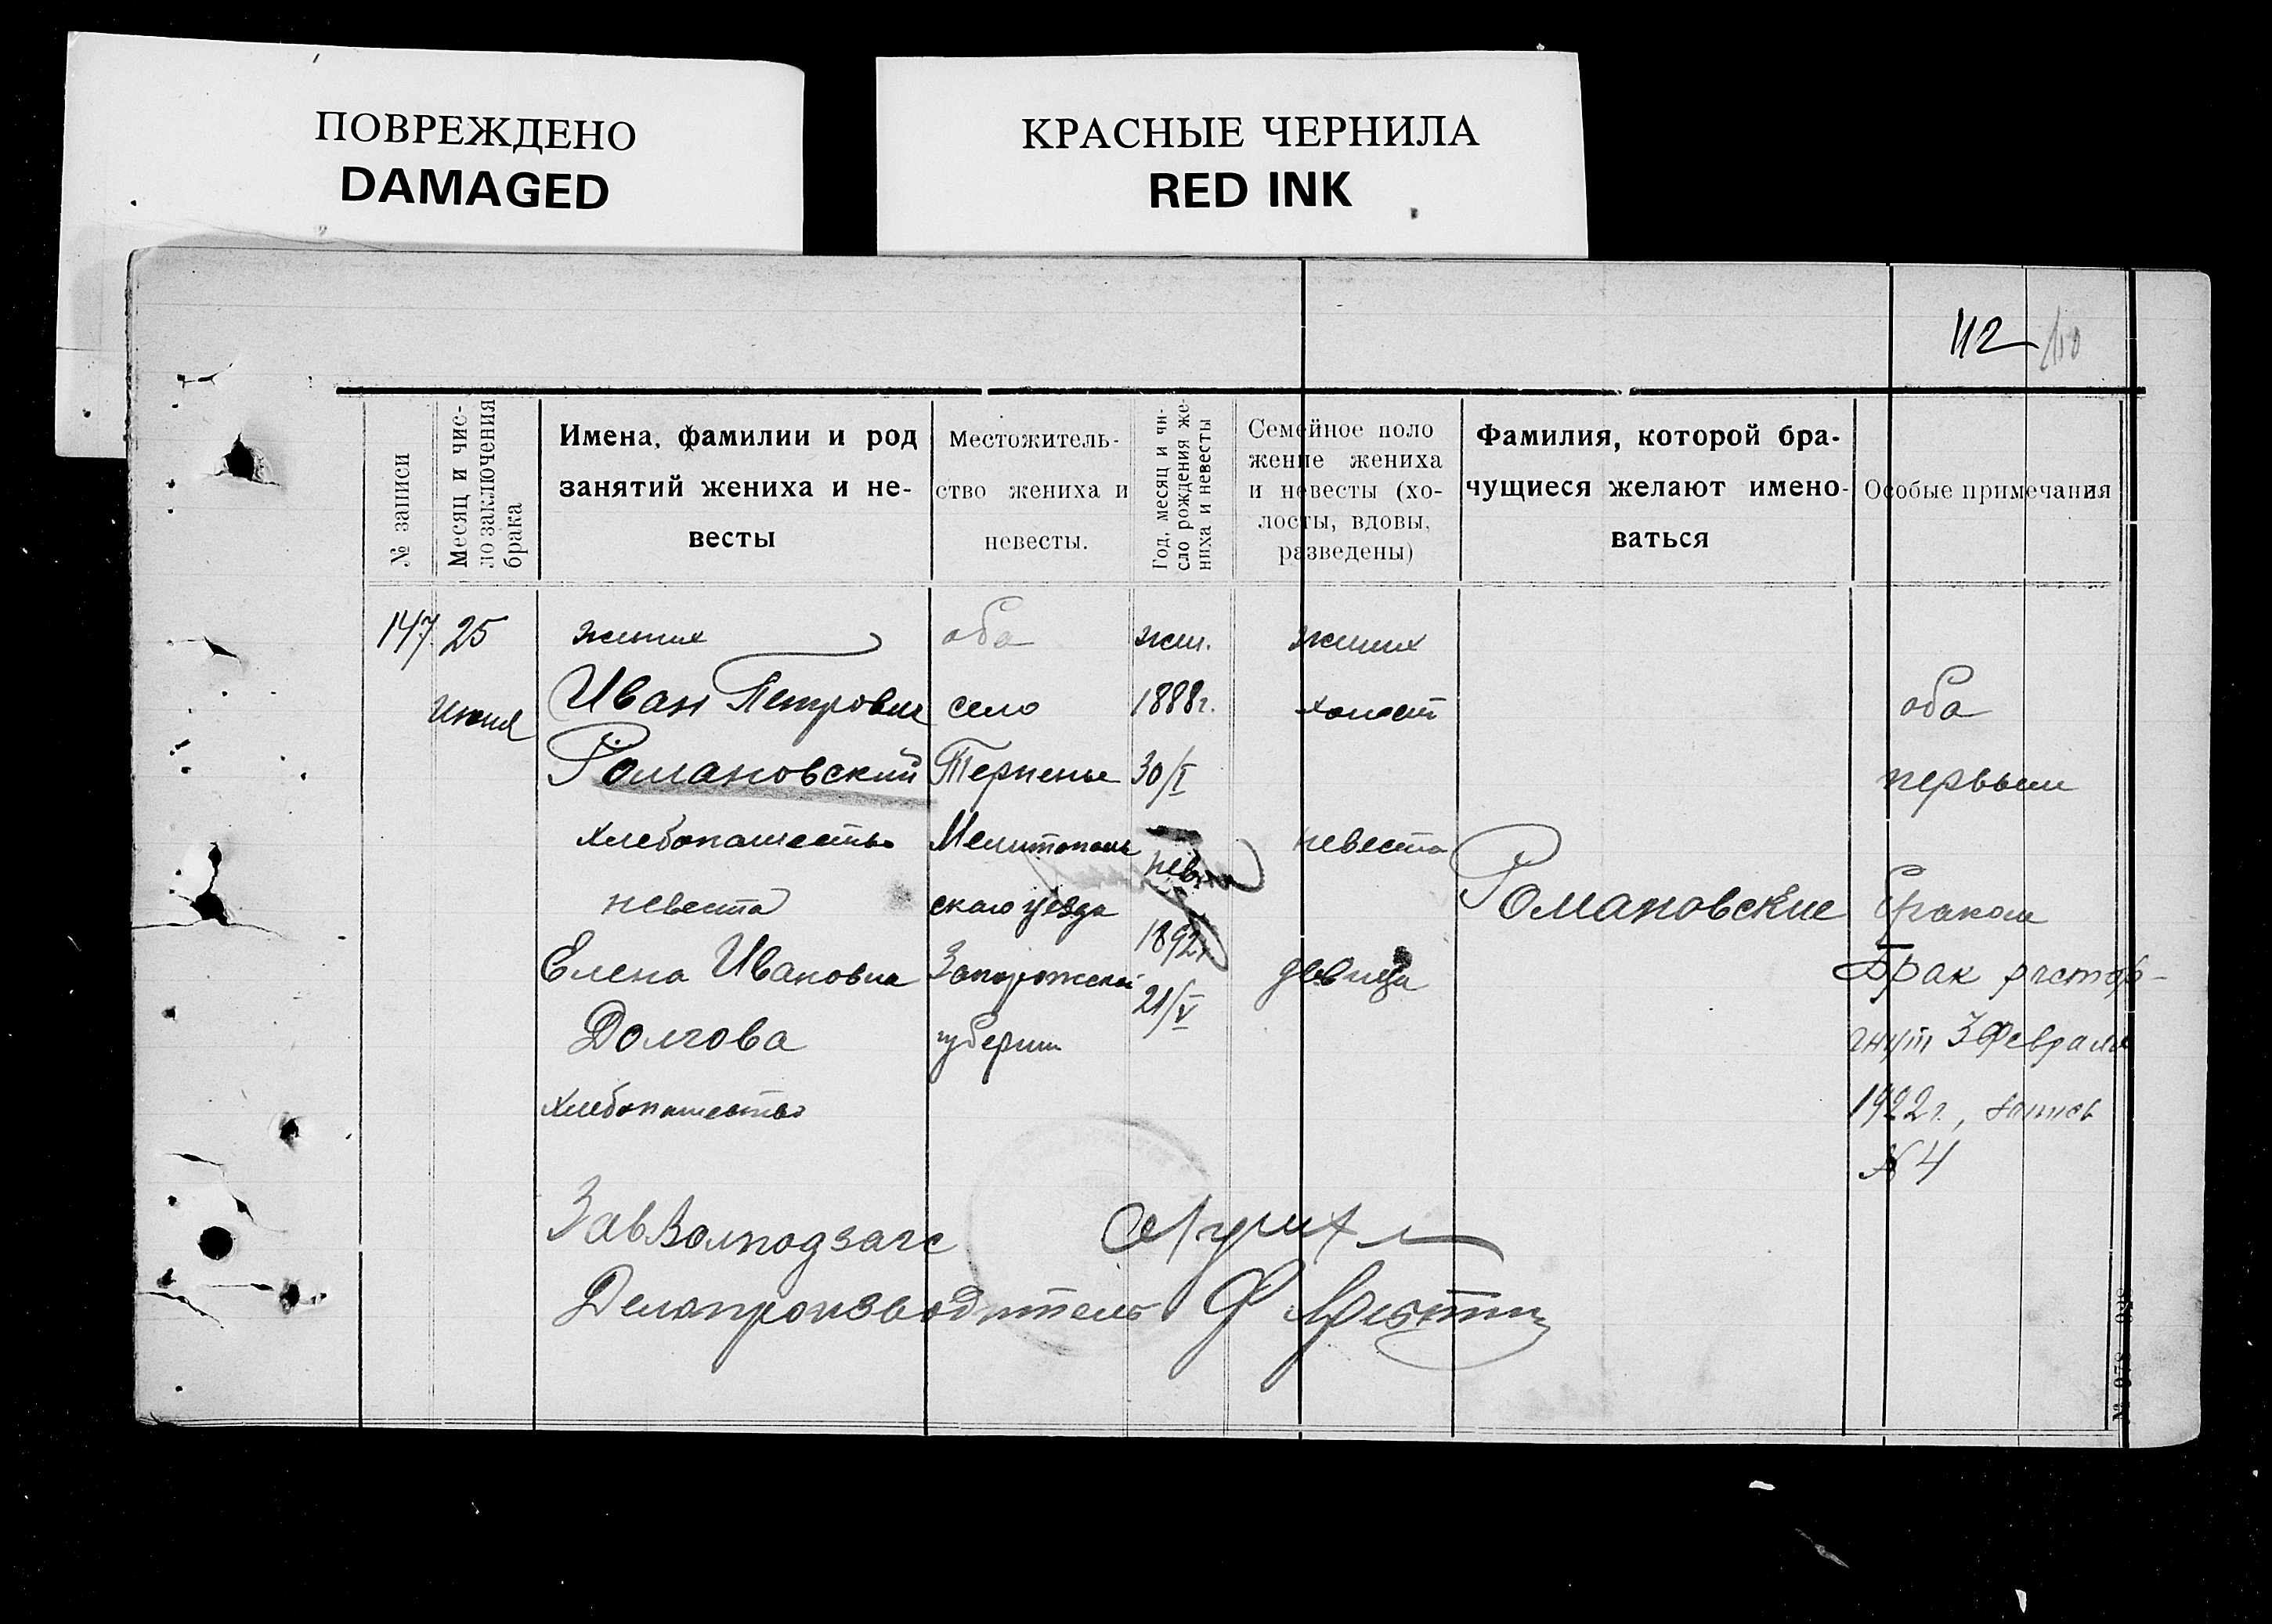 ПОВРЕЖДЕНО
DAMAGED
КРАСНЫЕ ЧЕРНИЛА
RED INK
112
110
№ записи
Месяц и чис-
ло заключения
брака
Имена, фамилии и род
занятий жениха и не-
весты
Местожитель-
ство жениха и
невесты.
Год, месяц и чи-
сло рождения же-
ниха и невесты
Семейное поло
жение жениха
и невесты (хо-
лосты, вдовы,
разведены)
Фамилия, которой бра-
чущиеся желают имено-
ваться
Особые примечания
147
25
июня
жених
Иван Петрович
Романовский
хлебопашество
невеста
Елена Ивановна
Долгова
хлебопашество
оба
село
Терпенье
Мелитополь
скаго уезда
Запорожской
губернии
жен.
1888г.
30/I
нев.
1892г
21/V
жених
холост
невеста
девица
Романовские
оба
первым
браком
Брак растор-
гнут 3 Февраля
1922 г., запись
№ 4
ЗавВолподзагс
Делопроизводитель